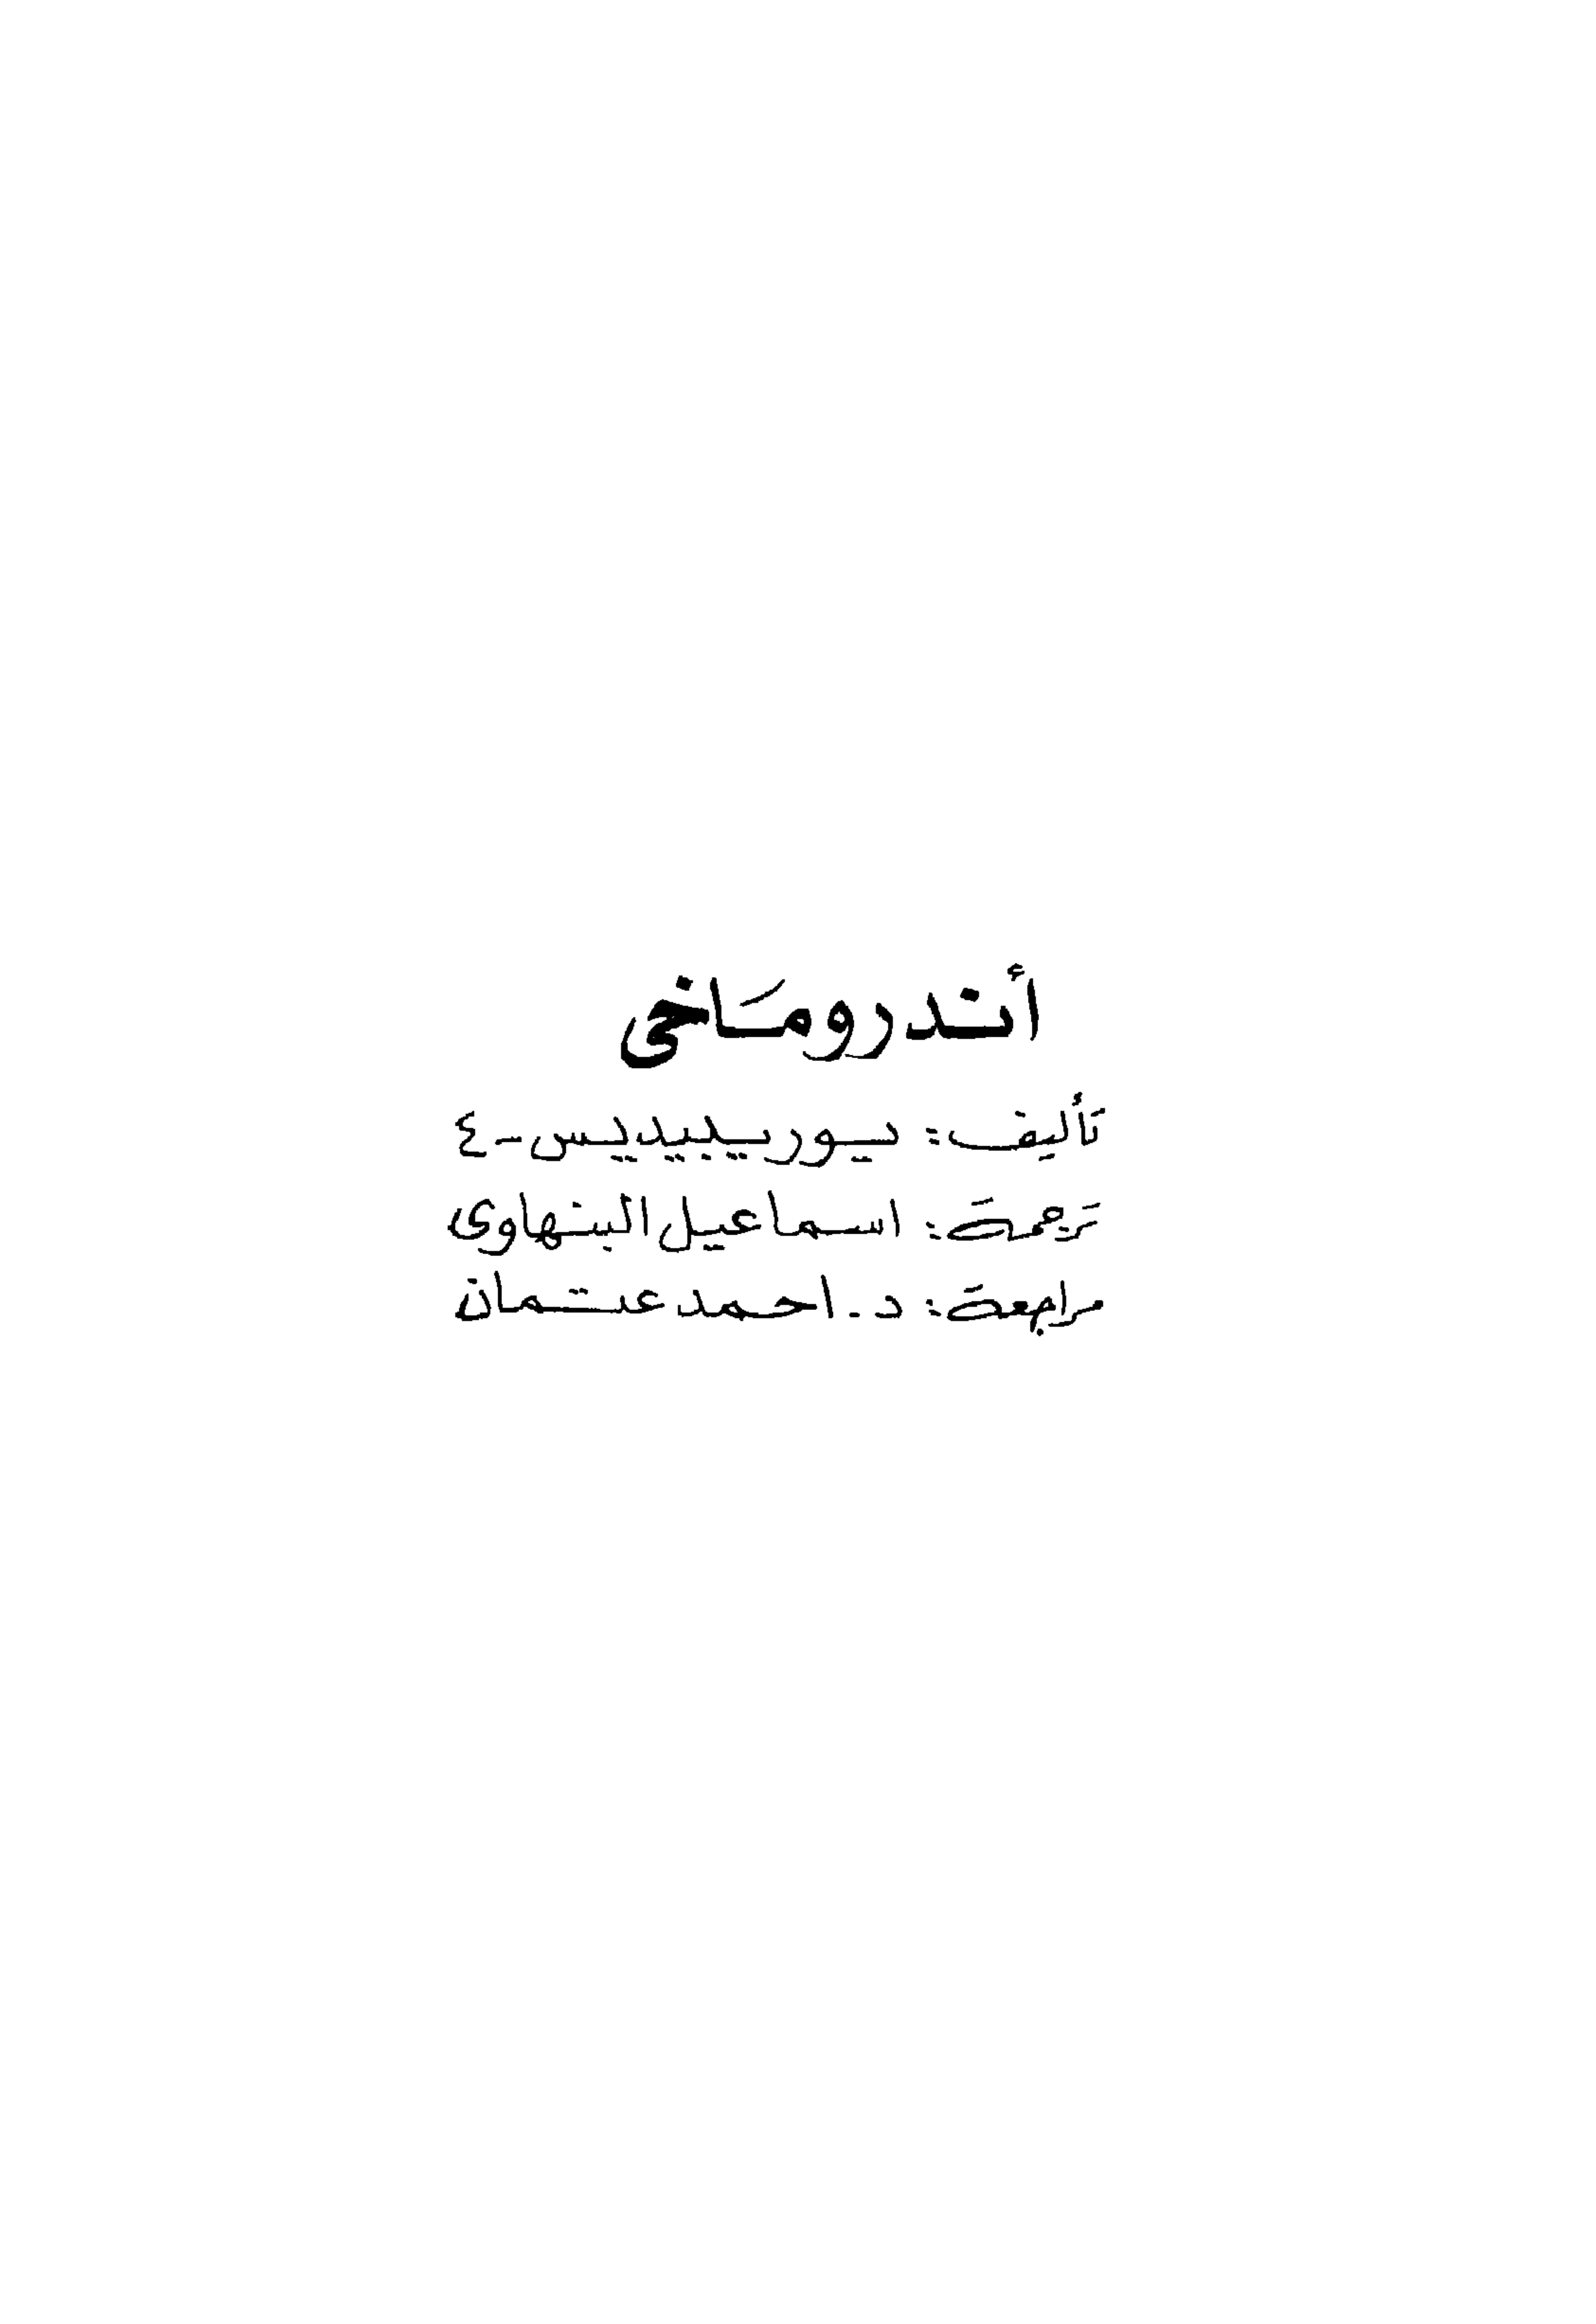 أندرومَاخى
تأليف: يوريبيديس - ٤
ترجمة: اسماعيل البنهاوى
مراجعة: د. احمد عتمان